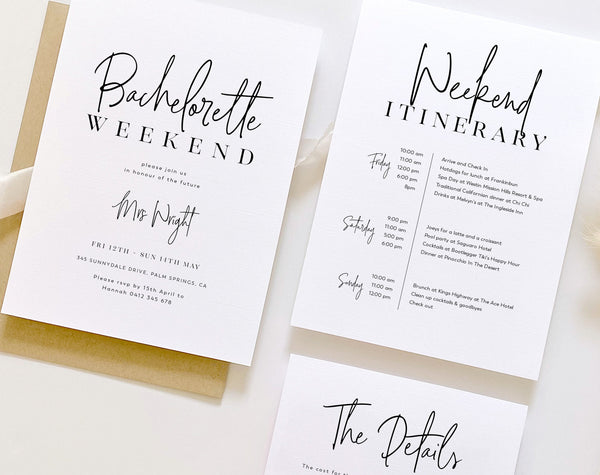 Bachelorette
WEEKEND
please join us
in honour of the future
Mrs Wright
FRI 12TH - SUN 14TH MAY
345 SUNNYDALE DRIVE, PALM SPRINGS, CA
please rsvp by 15th April to
Hannah 0412 345 678
Weekend
ITINERARY
Friday
10:00 am
11:00 am
12:00 pm
6:00 pm
8pm
Arrive and Check In
Hotdogs for lunch at Frankinbun
Spa Day at Westin Mission Hills Resort & Spa
Traditional Californian dinner at Chi Chi
Drinks at Melvyn's at The Ingleside Inn
Saturday
9:00 pm
11:00 am
5:00 pm
6:00 pm
Joeys for a latte and a croissant
Pool party at Saguaro Hotel
Cocktails at Bootlegger Tiki's Happy Hour
Dinner at Pinocchio In The Desert
Sunday
10:00 am
11:00 am
12:00 pm
Brunch at Kings Highway at The Ace Hotel
Clean up cocktails & goodbyes
Check out
The Details
The cost for